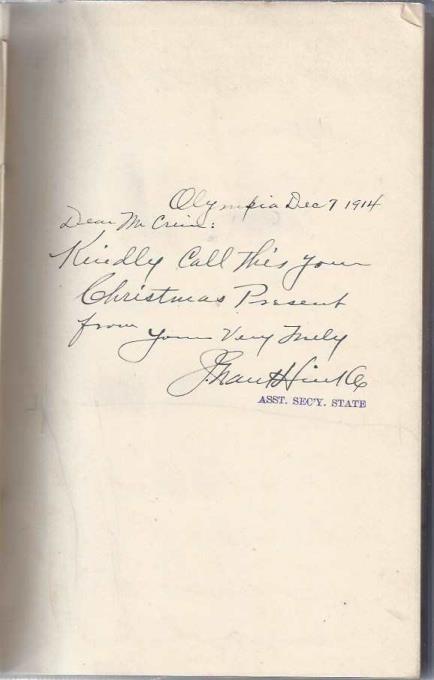 Olympia Dec 7 1914
Dear Mr
Kindly Call this your
Christmas Present
from yours Very Truly
J. Grant Hinkle
ASST. SEC'Y. STATE